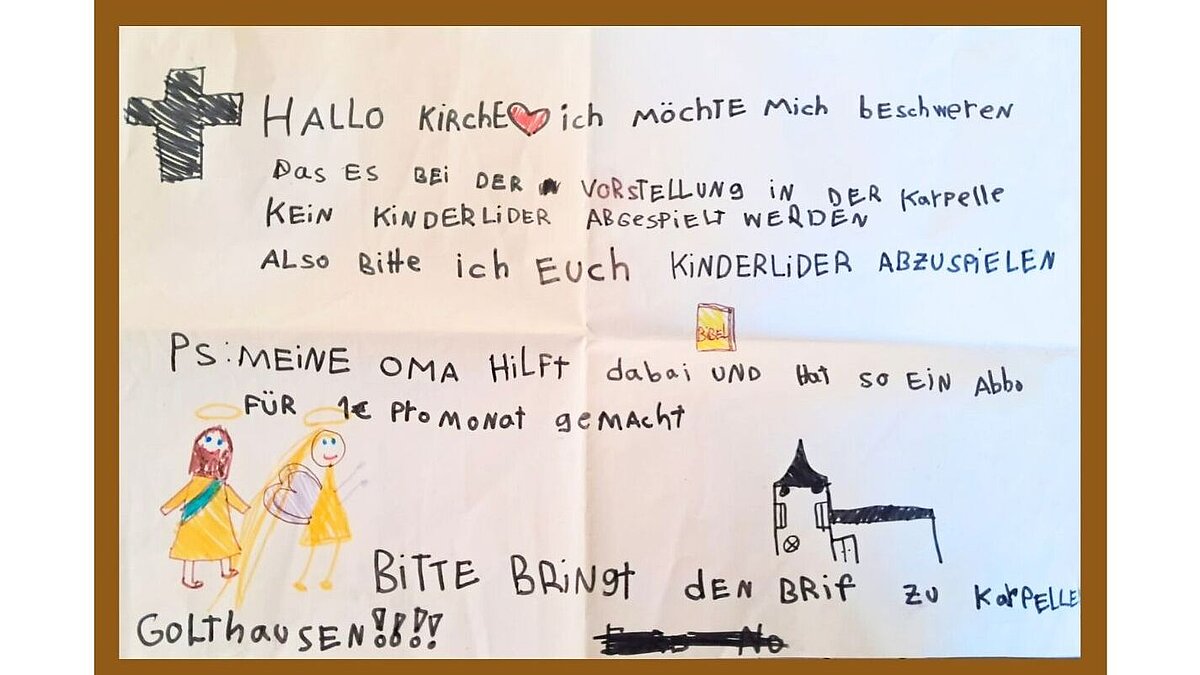 HALLO KiRchE ich MÖCHTE Mich bEschweren
Das ES BEi DER VORSTELLUNG iN DER Karpelle
KEiN KiNDERLiDER ABGESPiELT WERDEN
ALSO Bitte ich EUch KiNDERLiDER ABZUSPiELEN
BiBEL
PS:MEiNE OMA HiLFt dabai UND Hat SO EiN Abbo
FÜR 1€ Pro MONat geMAcht
BiTTE BRiNgt dEN BRiF ZU KarPELLE
GOLThauSEN!!!!